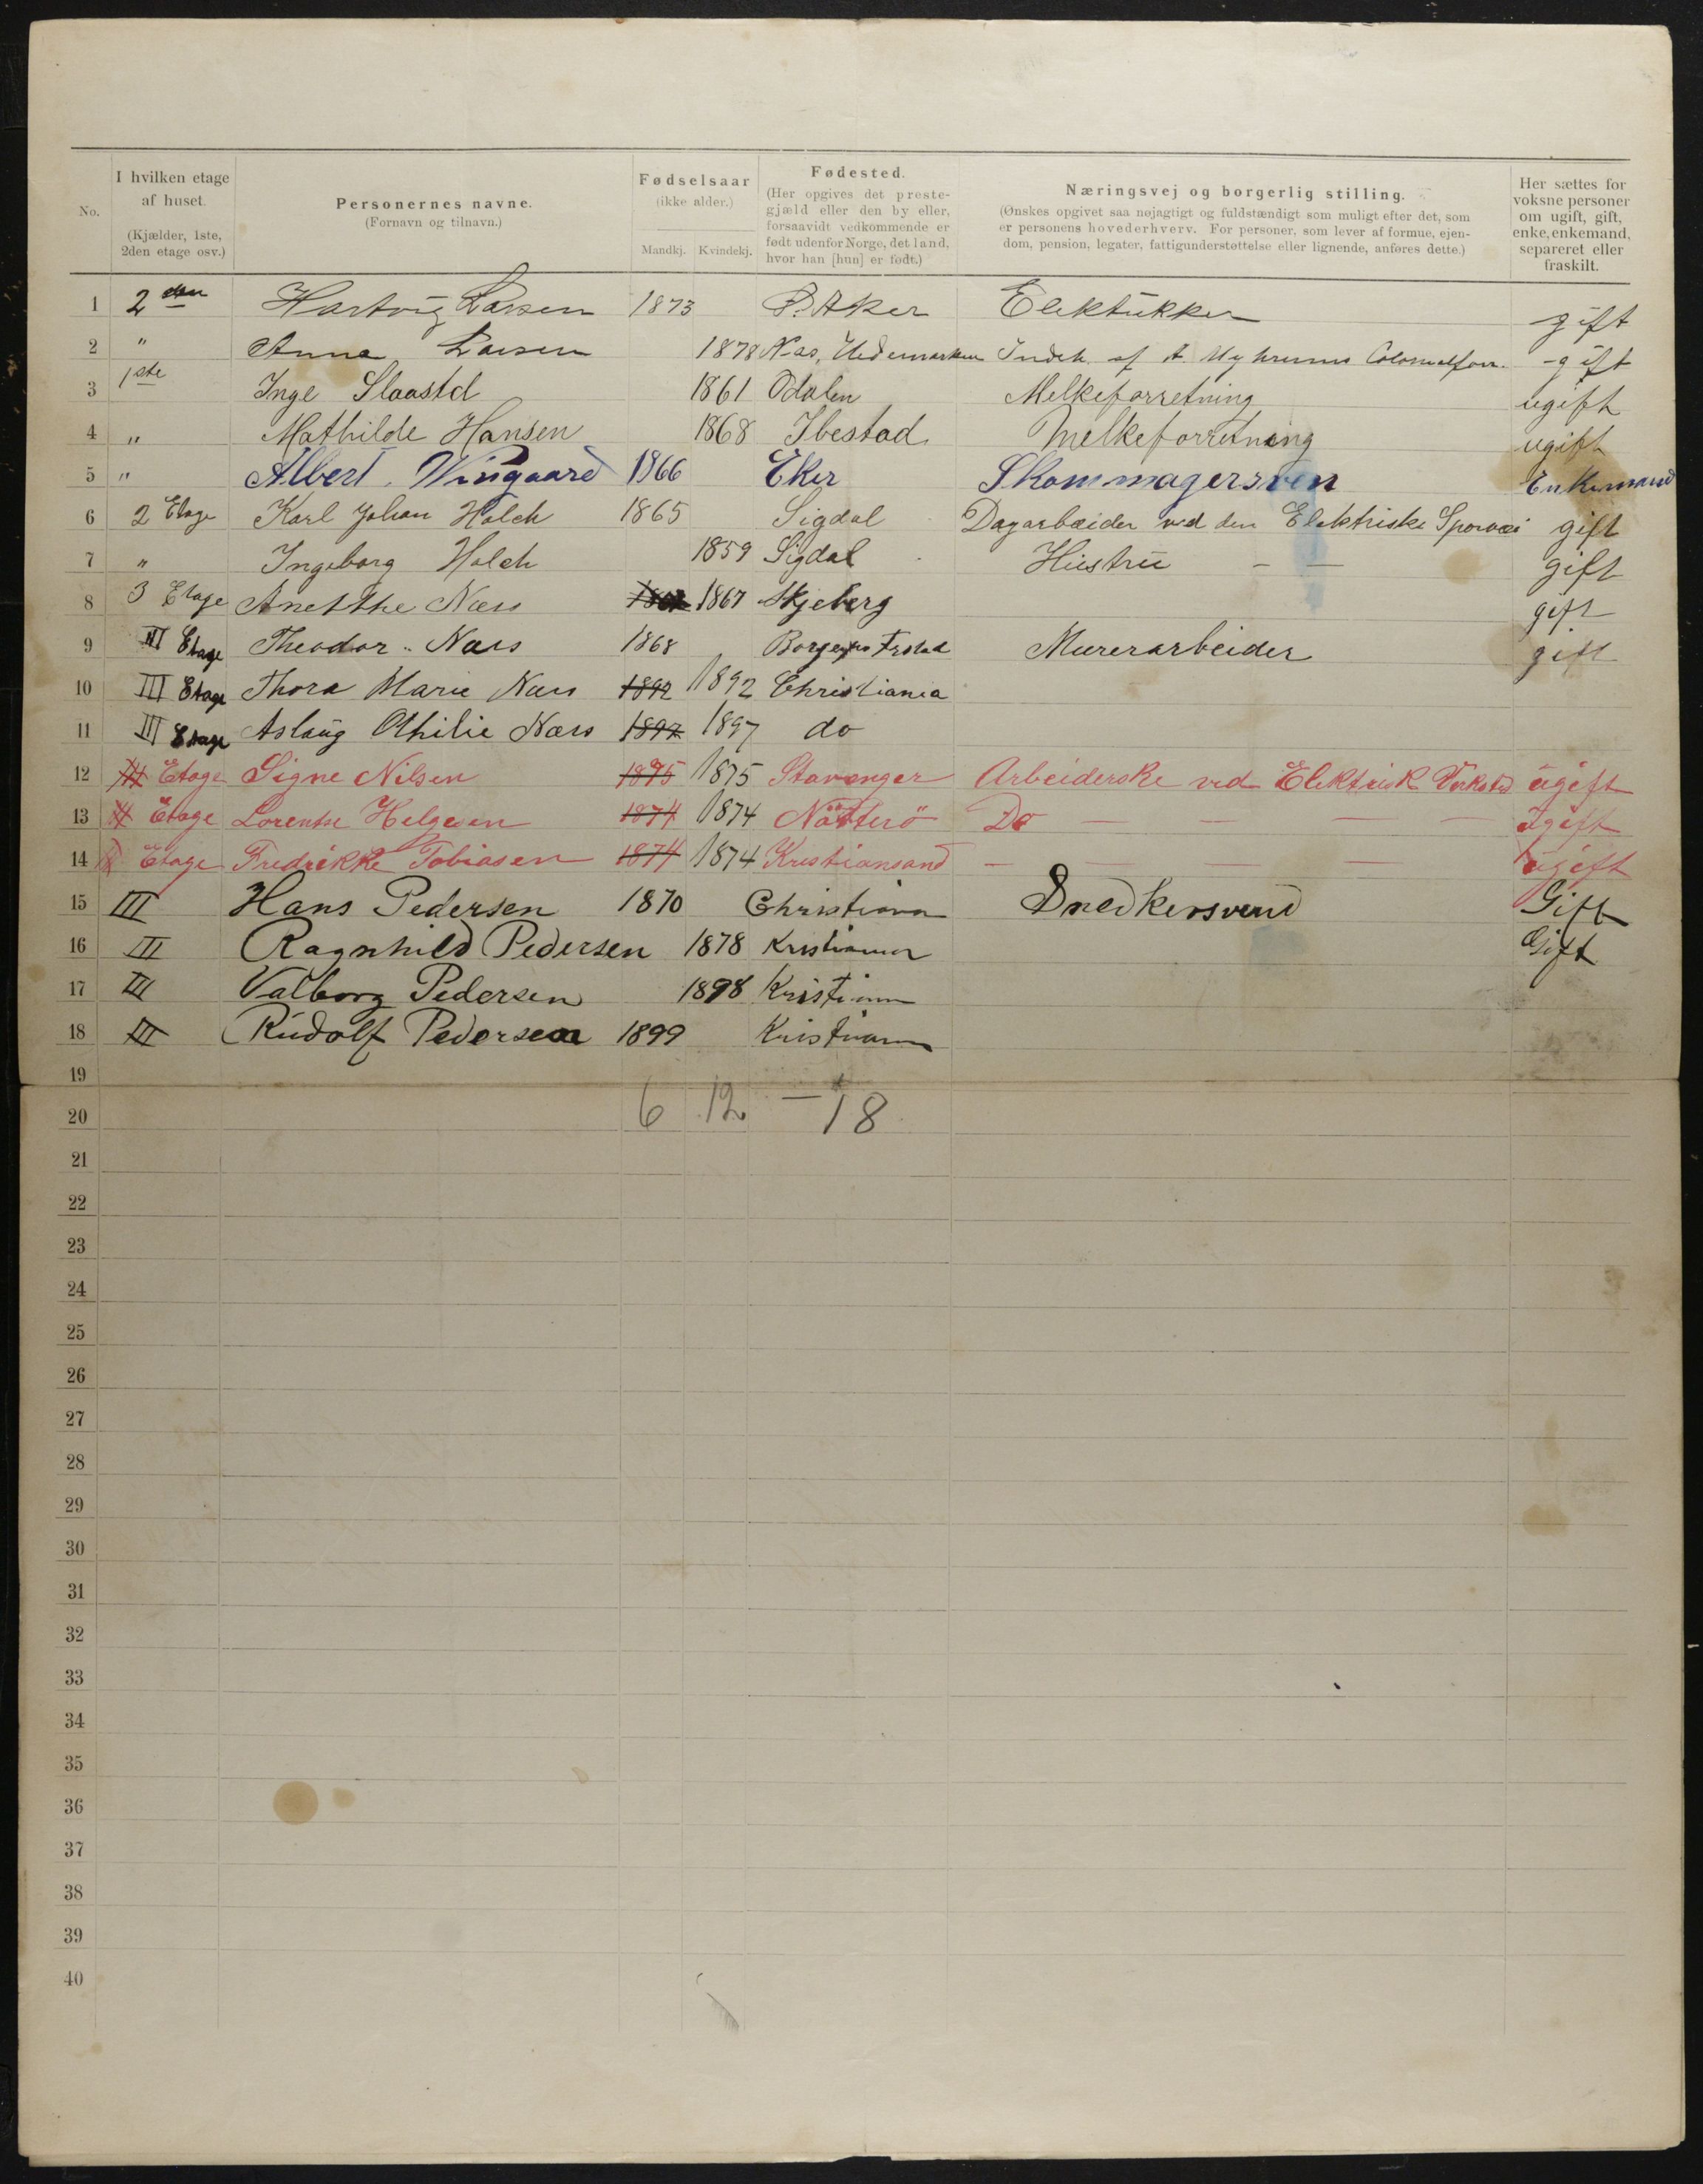 No. I hvilken etage af huset. (Kjælder, 1ste, 2den etage osv.) Personernes navne. (Fornavn og tilnavn.) Fødselsaar (ikke alder.) Mandkj. Kvindekj. Fødested. (Her opgives det prestegjæld eller den by eller, forsaavidt vedkommende er født udenfor Norge, det land, hvor han [hun] er født.) Næringsvej og borgerlig stilling. (Ønskes opgivet saa nøjagtigt og fuldstændigt som muligt efter det, som er personens hovederhverv. For personer, som lever af formue, ejendom, pension, legater, fattigunderstøttelse eller lignende, anføres dette.) Her sættes for voksne personer om ugift, gift, enke, enkemand, separeret eller fraskilt.
1 2den Hartvig Larsen 1873 Aker Elektrikker gift
2 " Anna Larsen 1878 Næs, Hedemarken Indeh. af A. Myhruns Colonialforr. gift
3 1ste Inge Slaastd 1861 Odalen Melkeforretning ugift
4 " Mathilde Hansen 1868 Ibestad Melkeforretning ugift
5 " Albert Wingaard 1866 Eker Skommagersven Enkemand
6 2 Etage Karl Johan Holch 1865 Sigdal Dagarbeider ved den Elektriske Sporvei gift
7 " Ingeborg Holch 1859 Sigdal Hustru — — gift
8 3 Etage Anetthe Næss 1867 1867 Skjeberg gift
9 III Etage Theodor Næss 1868 Borge Murerarbeider gift
10 III Etage Thora Marie Næss 1892 1892 Christiania
11 III Etage Aslaug Othilie Næss 1897 1897 do
12 Etage Signe Nilsen 1875 1875 Stavanger Arbeiderske ved Elektrisk Verksted ugift
13 Etage Lorentse Helgesen 1874 1874 Nötterö Do — — — — ugift
14 Etage Fredrikke Tobiasen 1874 1874 Kristiansand — — — — ugift
15 III Hans Pedersen 1870 Christiania Snedkersvend Gift
16 III Ragnhild Pedersen 1878 Kristiania Gift
17 III Valborg Pedersen 1898 Kristiania
18 III Rudolf Pedersen 1899 Kristiania
19
20 6 12 — 18
21
22
23
24
25
26
27
28
29
30
31
32
33
34
35
36
37
38
39
40